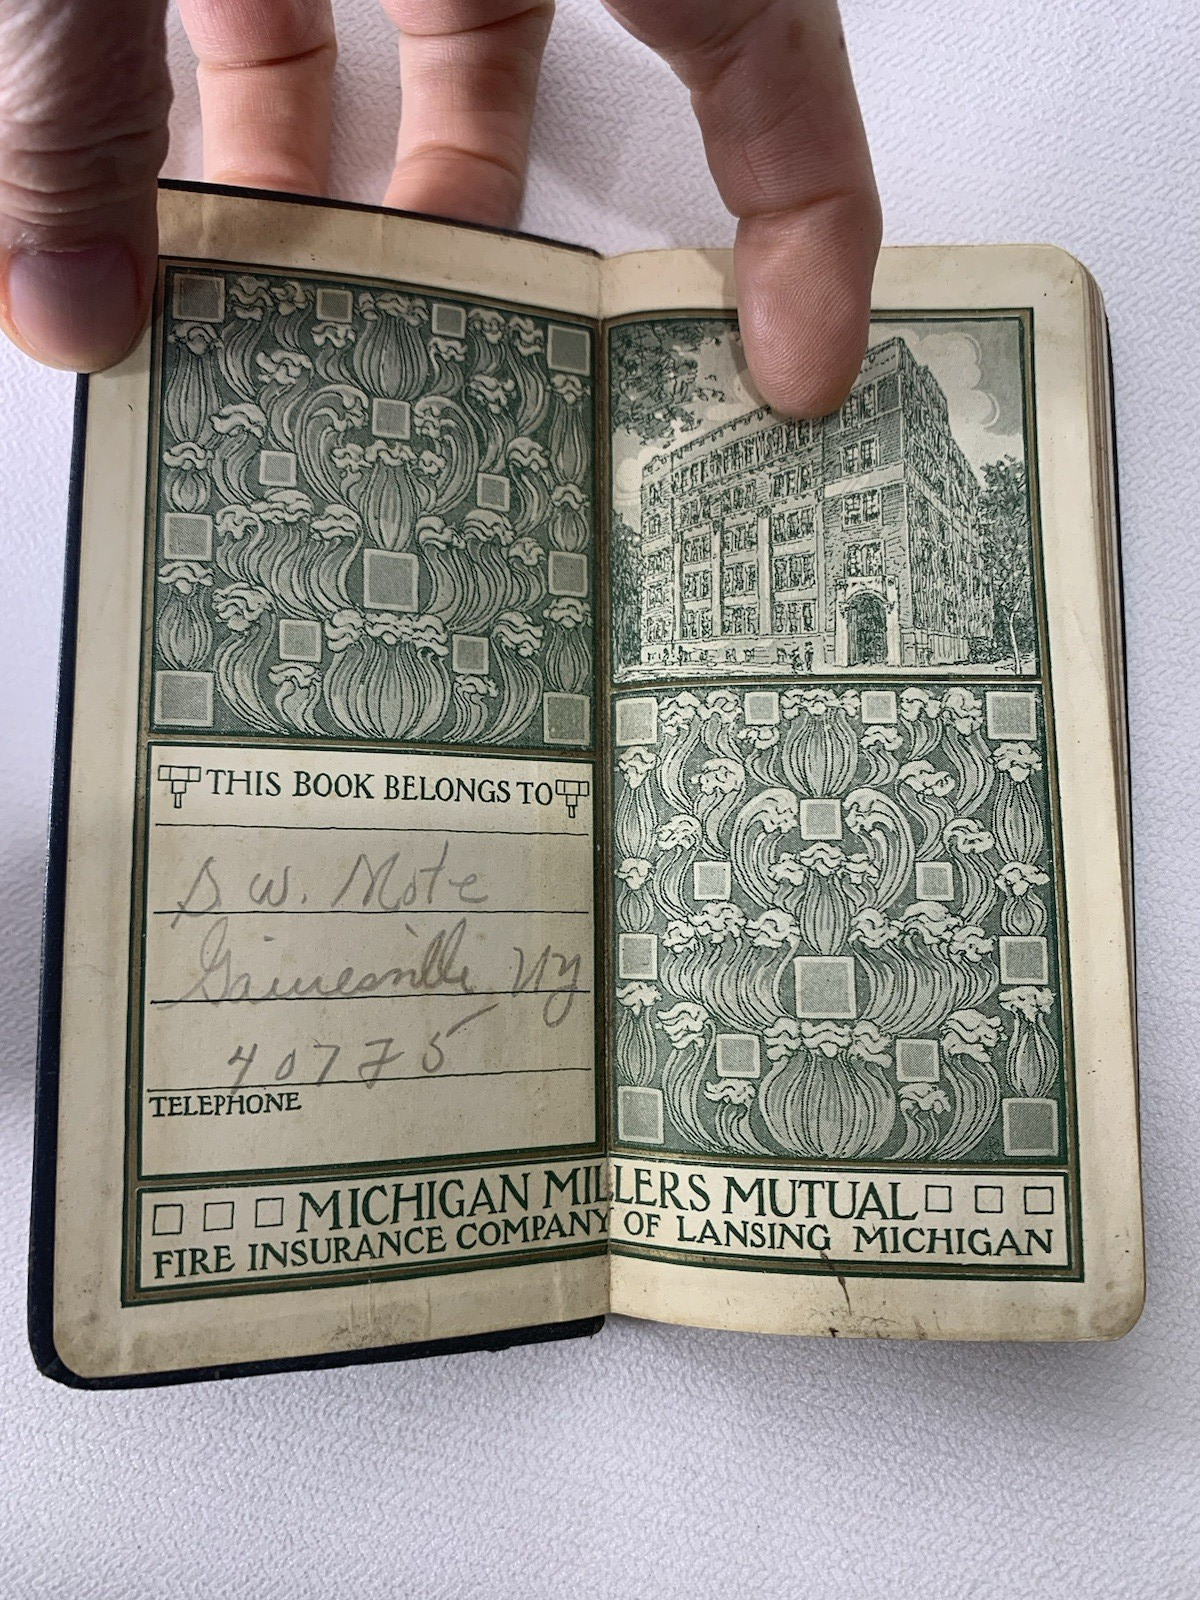 THIS BOOK BELONGS TO
S. W. Mote
Gainesville Ny
40775
TELEPHONE
MICHIGAN MILLERS MUTUAL
FIRE INSURANCE COMPANY OF LANSING MICHIGAN